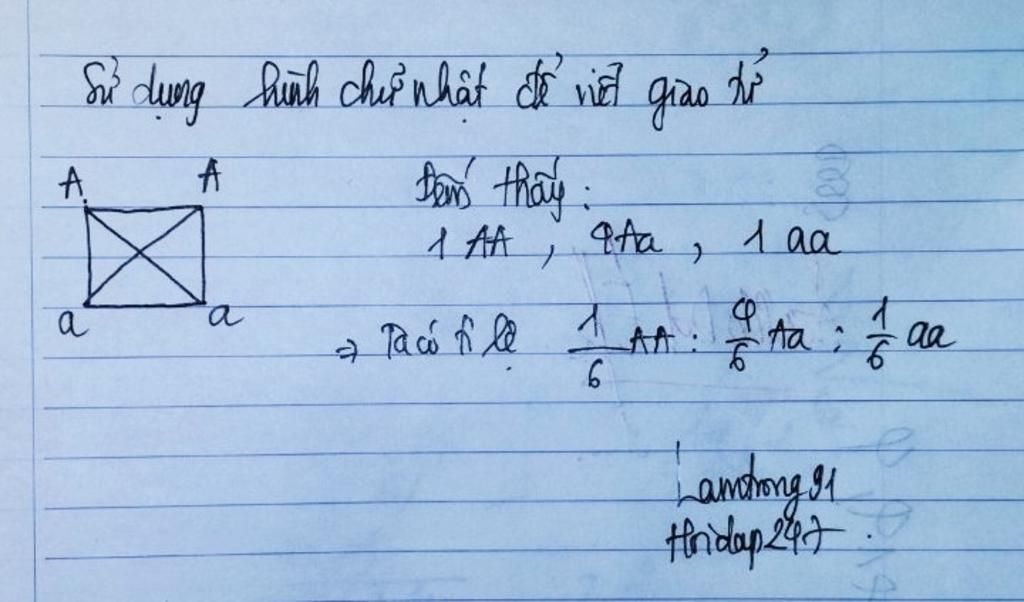 Sử dụng hình chữ nhật để viết giao tử
A A
Đếm thấy:
1 AA, 4Aa, 1 aa
a a
⇒ Ta có tỉ lệ 1/6 AA : 4/6 Aa : 1/6 aa
Lamtrong91
Hoidap247.